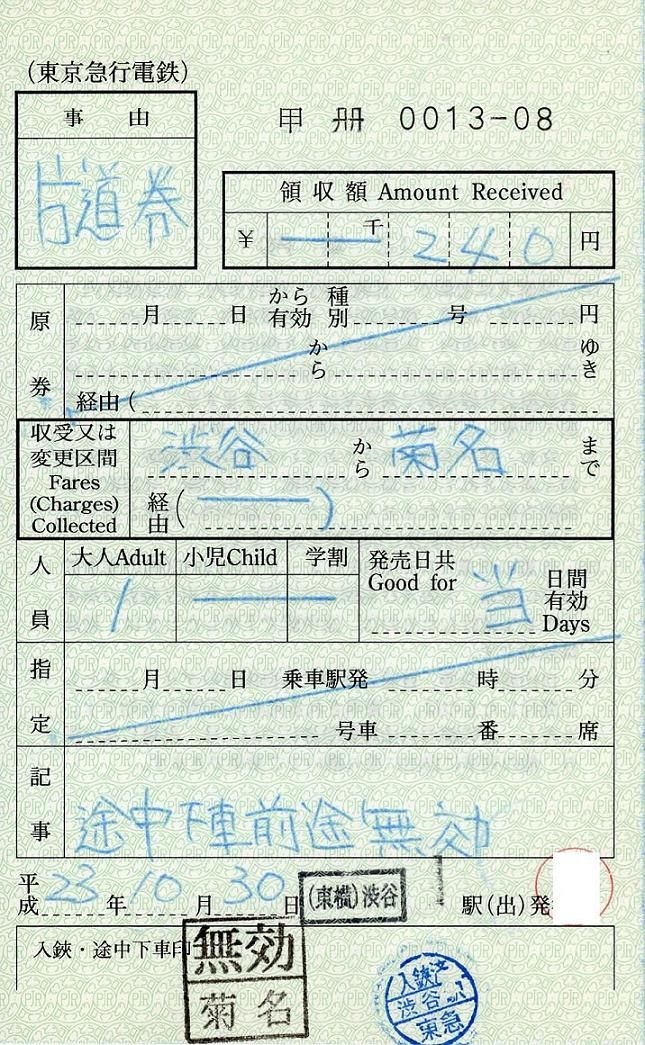 (東京急行電鉄)
事由
甲 册 0013-08
片道券
領収額 Amount Received
¥ 千 240 円
原券
月 日 から有効 種別 号 円
から ゆき
経由(
収受又は変更区間 Fares (Charges) Collected
渋谷 から 菊名 まで
経由( )
人員
大人Adult 小児Child 学割 発売日共 Good for 当 日間有効 Days
1
指定
月 日 乗車駅発 時 分
号車 番 席
記事
途中下車前途無効
平成 23 年 10 月 30 日 (東横)渋谷 駅(出)発
入鋏・途中下車印
無効
菊名
入鋏
渋谷
東急